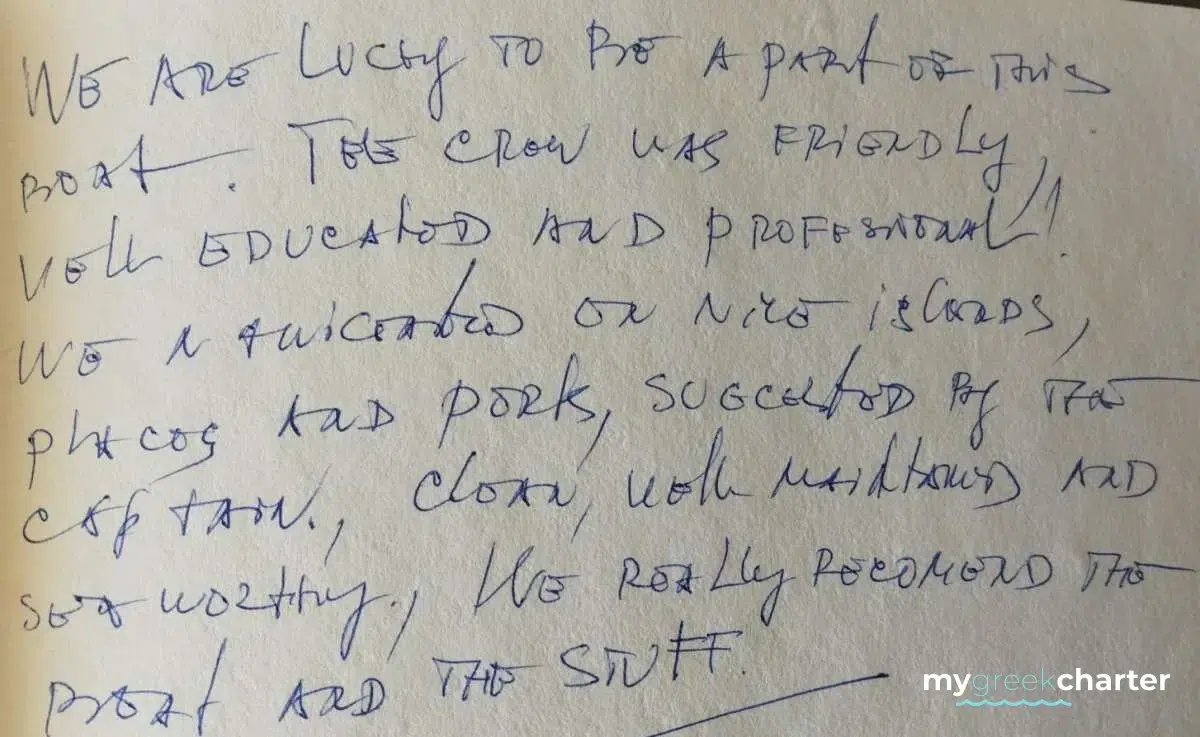 WE ARE LUCKY TO BE A PART OF THIS
BOAT. THE CREW WAS FRIENDLY,
WELL EDUCATED AND PROFESSIONAL!
WE NAVIGATED ON NICE ISLANDS,
PLACES AND PORTS, SUGGESTED BY THE
CAPTAIN., CLEAN, WELL MAINTAINED AND
SEAWORTHY., WE REALLY RECOMEND THE
BOAT AND THE STUFF.
mygreekcharter